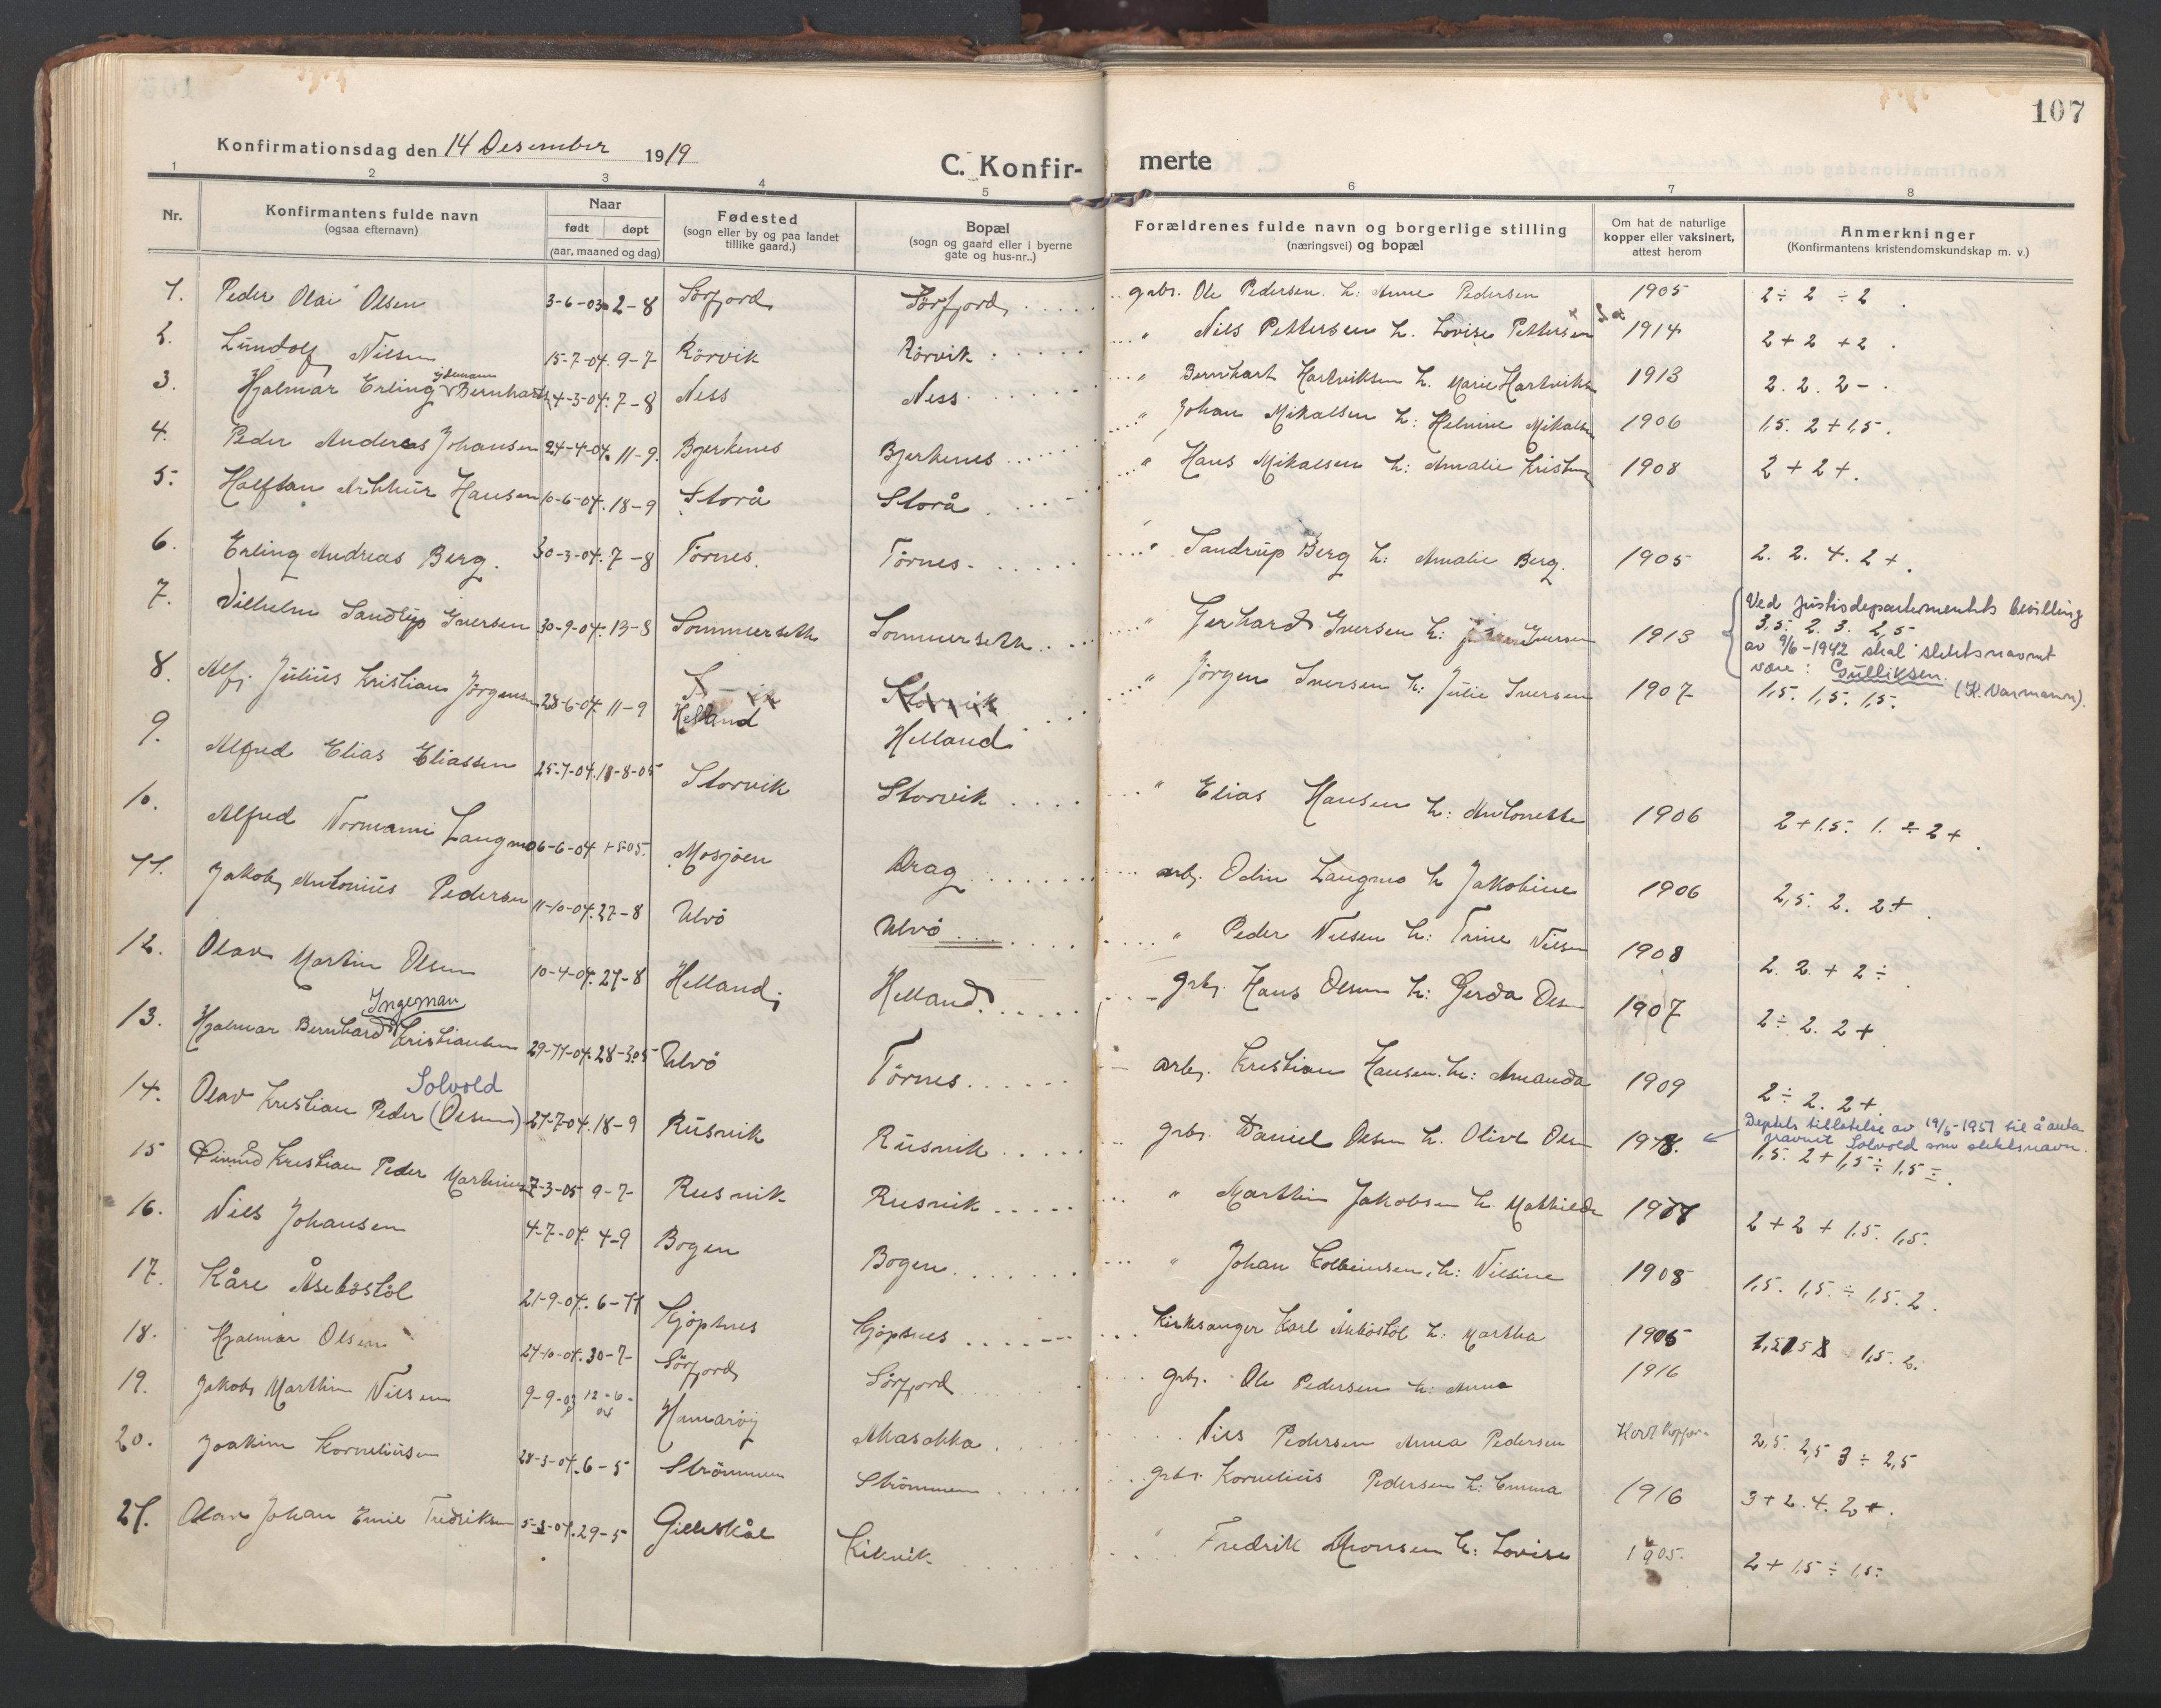 107
Konfirmationsdag den 14 Desember 1919
C. Konfir- merte
1 2 3 4 5 6 7 8
Nr.
Konfirmantens fulde navn
(ogsaa efternavn)
Naar
født døpt
(aar, maaned og dag)
Fødested
(sogn eller by og paa landet
tillike gaard.)
Bopæl
(sogn og gaard eller i byerne
gate og hus-nr..)
Forældrenes fulde navn og borgerlige stilling
(næringsvei) og bopæl
Om hat de naturlige
kopper eller vaksinert,
attest herom
Anmerkninger
(Konfirmantens kristendomskundskap m. v.)
1. Peder Olai Olsen 3-6-03 2-8 Sørfjord Sørfjord gbr. Ole Pedersen h: Anne Pedersen 1905 2 ÷ 2 ÷ 2
2. Lundolf Nilsen 15-7-04. 9-7 Rørvik Rørvik " Nils Pettersen h. Lovise Pettersen 1914 2 + 2 + 2.
3. Hjalmar Erling Bernhard 4-3-04. 7-8 Ness Ness " Bernhart Hartviksen h. Marie Hartviks 1913 2. 2. 2 -.
4. Peder Andereas Johansen 24-4-04. 11-9. Bjerkenes Bjerkenes " Johan Mikalsen h: Helmine Mikalsen 1906 1,5. 2 + 1,5.
5. Halftan Arthur Hansen 10-6-04. 18-9 Storå Storå " Hans Mikalsen h: Amalie 1908 2 + 2 +.
6. Erling Andreas Berg. 30-3-04. 7-8 Tørnes. Tørnes. " Sandrup Berg h: Amalie Berg. 1905 2. 2. 4. 2 +.
7. Vilhelm Iversen 30-9-04. 13-8 Sommerseth Sommerseth " Gerhard Iversen h: Iversen 1913 3,5. 2. 3. 2,5
Ved Justisdepartementets bevilling
av 9/6-1942 skal slektsnavnet
være: Gulliksen. (K. Varmann).
8. Alf. Julius Kristian Jørgensen 28-6-04. 11-9 Helland Storvik Helland " Jørgen Iversen h: Julie Iversen 1907 1,5. 1,5. 1,5.
9. Alfred Elias Eliassen 25-7-04. 18-8-05 Storvik Storvik " Elias Hansen h: Antonette 1906 2 + 1,5. 1. ÷ 2 +.
10. Alfred Normann Langmo 6-6-04 1-5-05. Mosjøen Drag arb. Odin Langmo h Jakobine 1906 2,5. 2. 2 +.
11. Jakob Antonius Pedersen 11-10-04. 27-8 Ulvø Ulvø " Peder Nilsen h: Trine Nilsen 1908 2. 2. + 2 ÷.
12. Olav Martin Olsen 10-4-04. 27-8 Helland Helland gbr. Hans Olsen h: Gerda Olsen 1907 2 ÷ 2. 2 +.
Ingeman
13. Hjalmar Bernhard Kristiansen 29-11-04. 28-3-05 Ulvø Tørnes arb. Kristian Hansen. h: Amanda 1909 2 ÷ 2. 2 +.
Solvold
14. Olav Kristian Peder (Olsen) 27-7-04. 18-9 Rusvik Rusvik gbr. Daniel Olsen h. Olive Olsen 1,5. 2 + 1,5 ÷ 1,5 ÷.
Deptets tillatelse av 19/6-1951 til å anta
navnet Solvold som slektsnavn.
15 Kristian Peder Martinius 7-3-05 9-7- Rusvik Rusvik " Marthin Jakobsen h. Mathilde 2 + 2 + 1,5. 1,5.
16. Nils Johansen 4-7-04. 4-9 Bogen Bogen " Johan h: Nilsine 1908 1,5. 1,5. ÷ 1,5. 2.
17. Kåre Åsebøstøl 21-9-04. 6-11 Kjøpsnes Kjøpsnes Kirkesanger Karl Åsebøstøl h: Martha 1905 1,5. 2.
18. Hjalmar Olsen 24-10-04. 30-7- Sørfjord Sørfjord gbr. Ole Pedersen h: Anna 1916
19. Jakob Marthin Nilsen 9-9-03 12-6-04 Hamarøy Nils Pedersen Anna Pedersen 2,5. 2,5 3 ÷ 2,5
20. Joakim Korneliusen 28-3-04. 6-5 Strømmen Strømmen gbr. Kornelius Pedersen h: Emma 1916 3 + 2. 4. 2 +.
21. Olav Johan Emil Fredriksen 5-3-04. 29-5 Gilleskål Kikvik " Fredrik Monsen h: Lovise 1905. 2 + 1,5 ÷ 1,5.